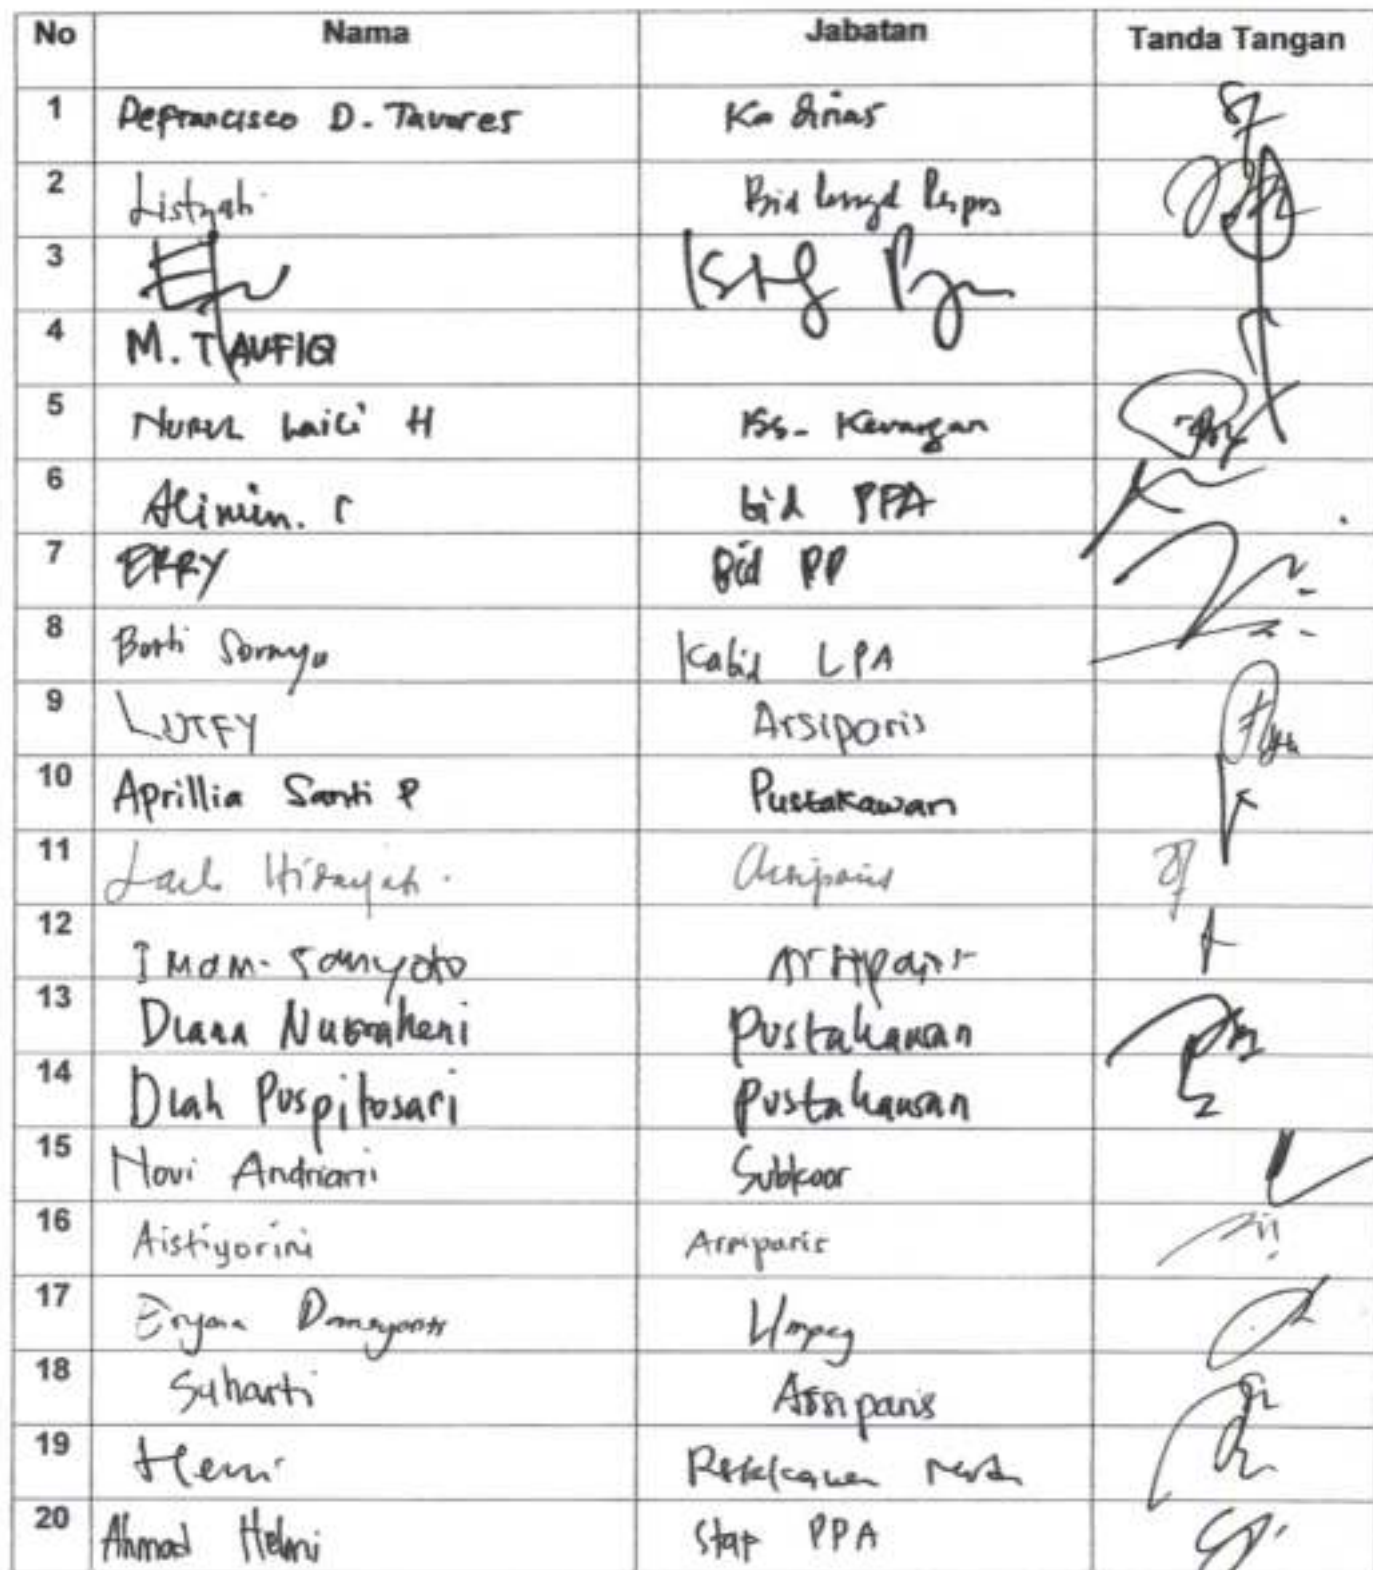 No Nama Jabatan Tanda Tangan
1 Defrancisco D. Tavares Ka dinas
2 Listyati Bid
3
4 M. TAUFIQ
5 Nurul Laili H Keuangan
6 Alimin. S bid PPA
7 ERRY Bid PP
8 Kabid LPA
9 LUTFY Arsiparis
10 Aprillia Santi P Pustakawan
11 Laela Hidayah. Arsiparis
12 Imam. Sonyoto Arsiparis
13 Diana Nugraheni Pustakawan
14 Diah Puspitosari Pustakawan
15 Novi Andriani Subkoor
16 Aistiyorini Arsiparis
17 Damayanti Umpeg
18 Suharti Arsiparis
19 Heni
20 Ahmad Helmi Staf PPA